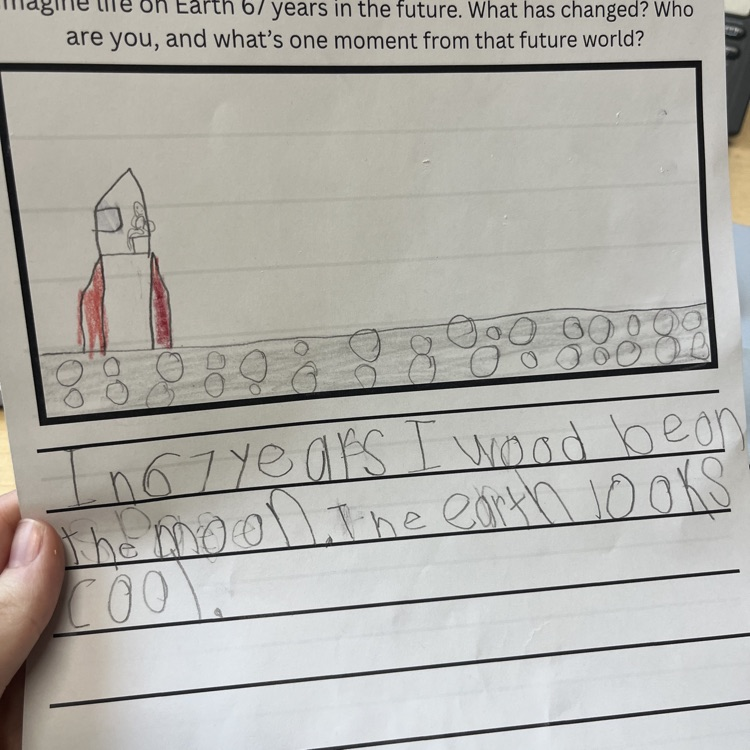 magine life on Earth 67 years in the future. What has changed? Who
are you, and what's one moment from that future world?
In 67 years I wood be on
the moon. The earth looks
cool.